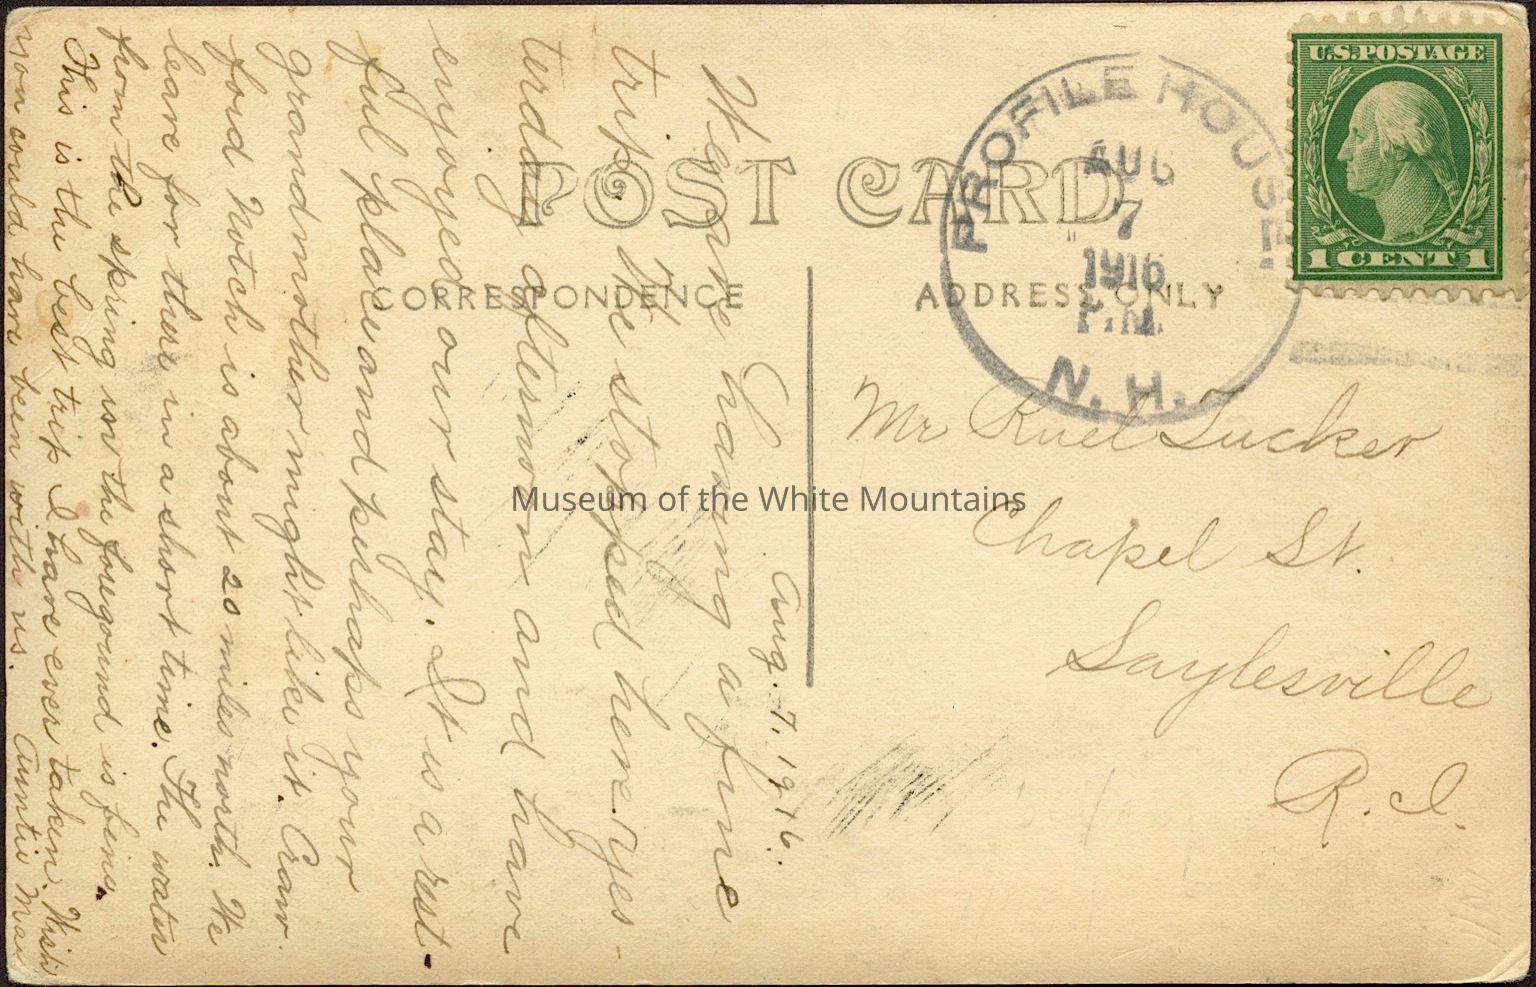 POST CARD
CORRESPONDENCE
ADDRESS ONLY
PROFILE HOUSE
AUG
7
1916
P.M.
N. H.
U.S. POSTAGE
1 CENT 1
Mr Ruel Tucker
Chapel St.
Saylesville
R. I.
Aug. 7, 1916.
We are having a fine
trip. We stopped here yes-
terday afternoon and have
enjoyed our stay. It is a rest-
ful place and perhaps your
grandmother might like it. Craw-
ford Notch is about 20 miles north. We
leave for there in a short time. The water
from the spring in the foreground is fine.
This is the best trip I have ever taken. Wish
you could have been with us. Auntie May
Museum of the White Mountains